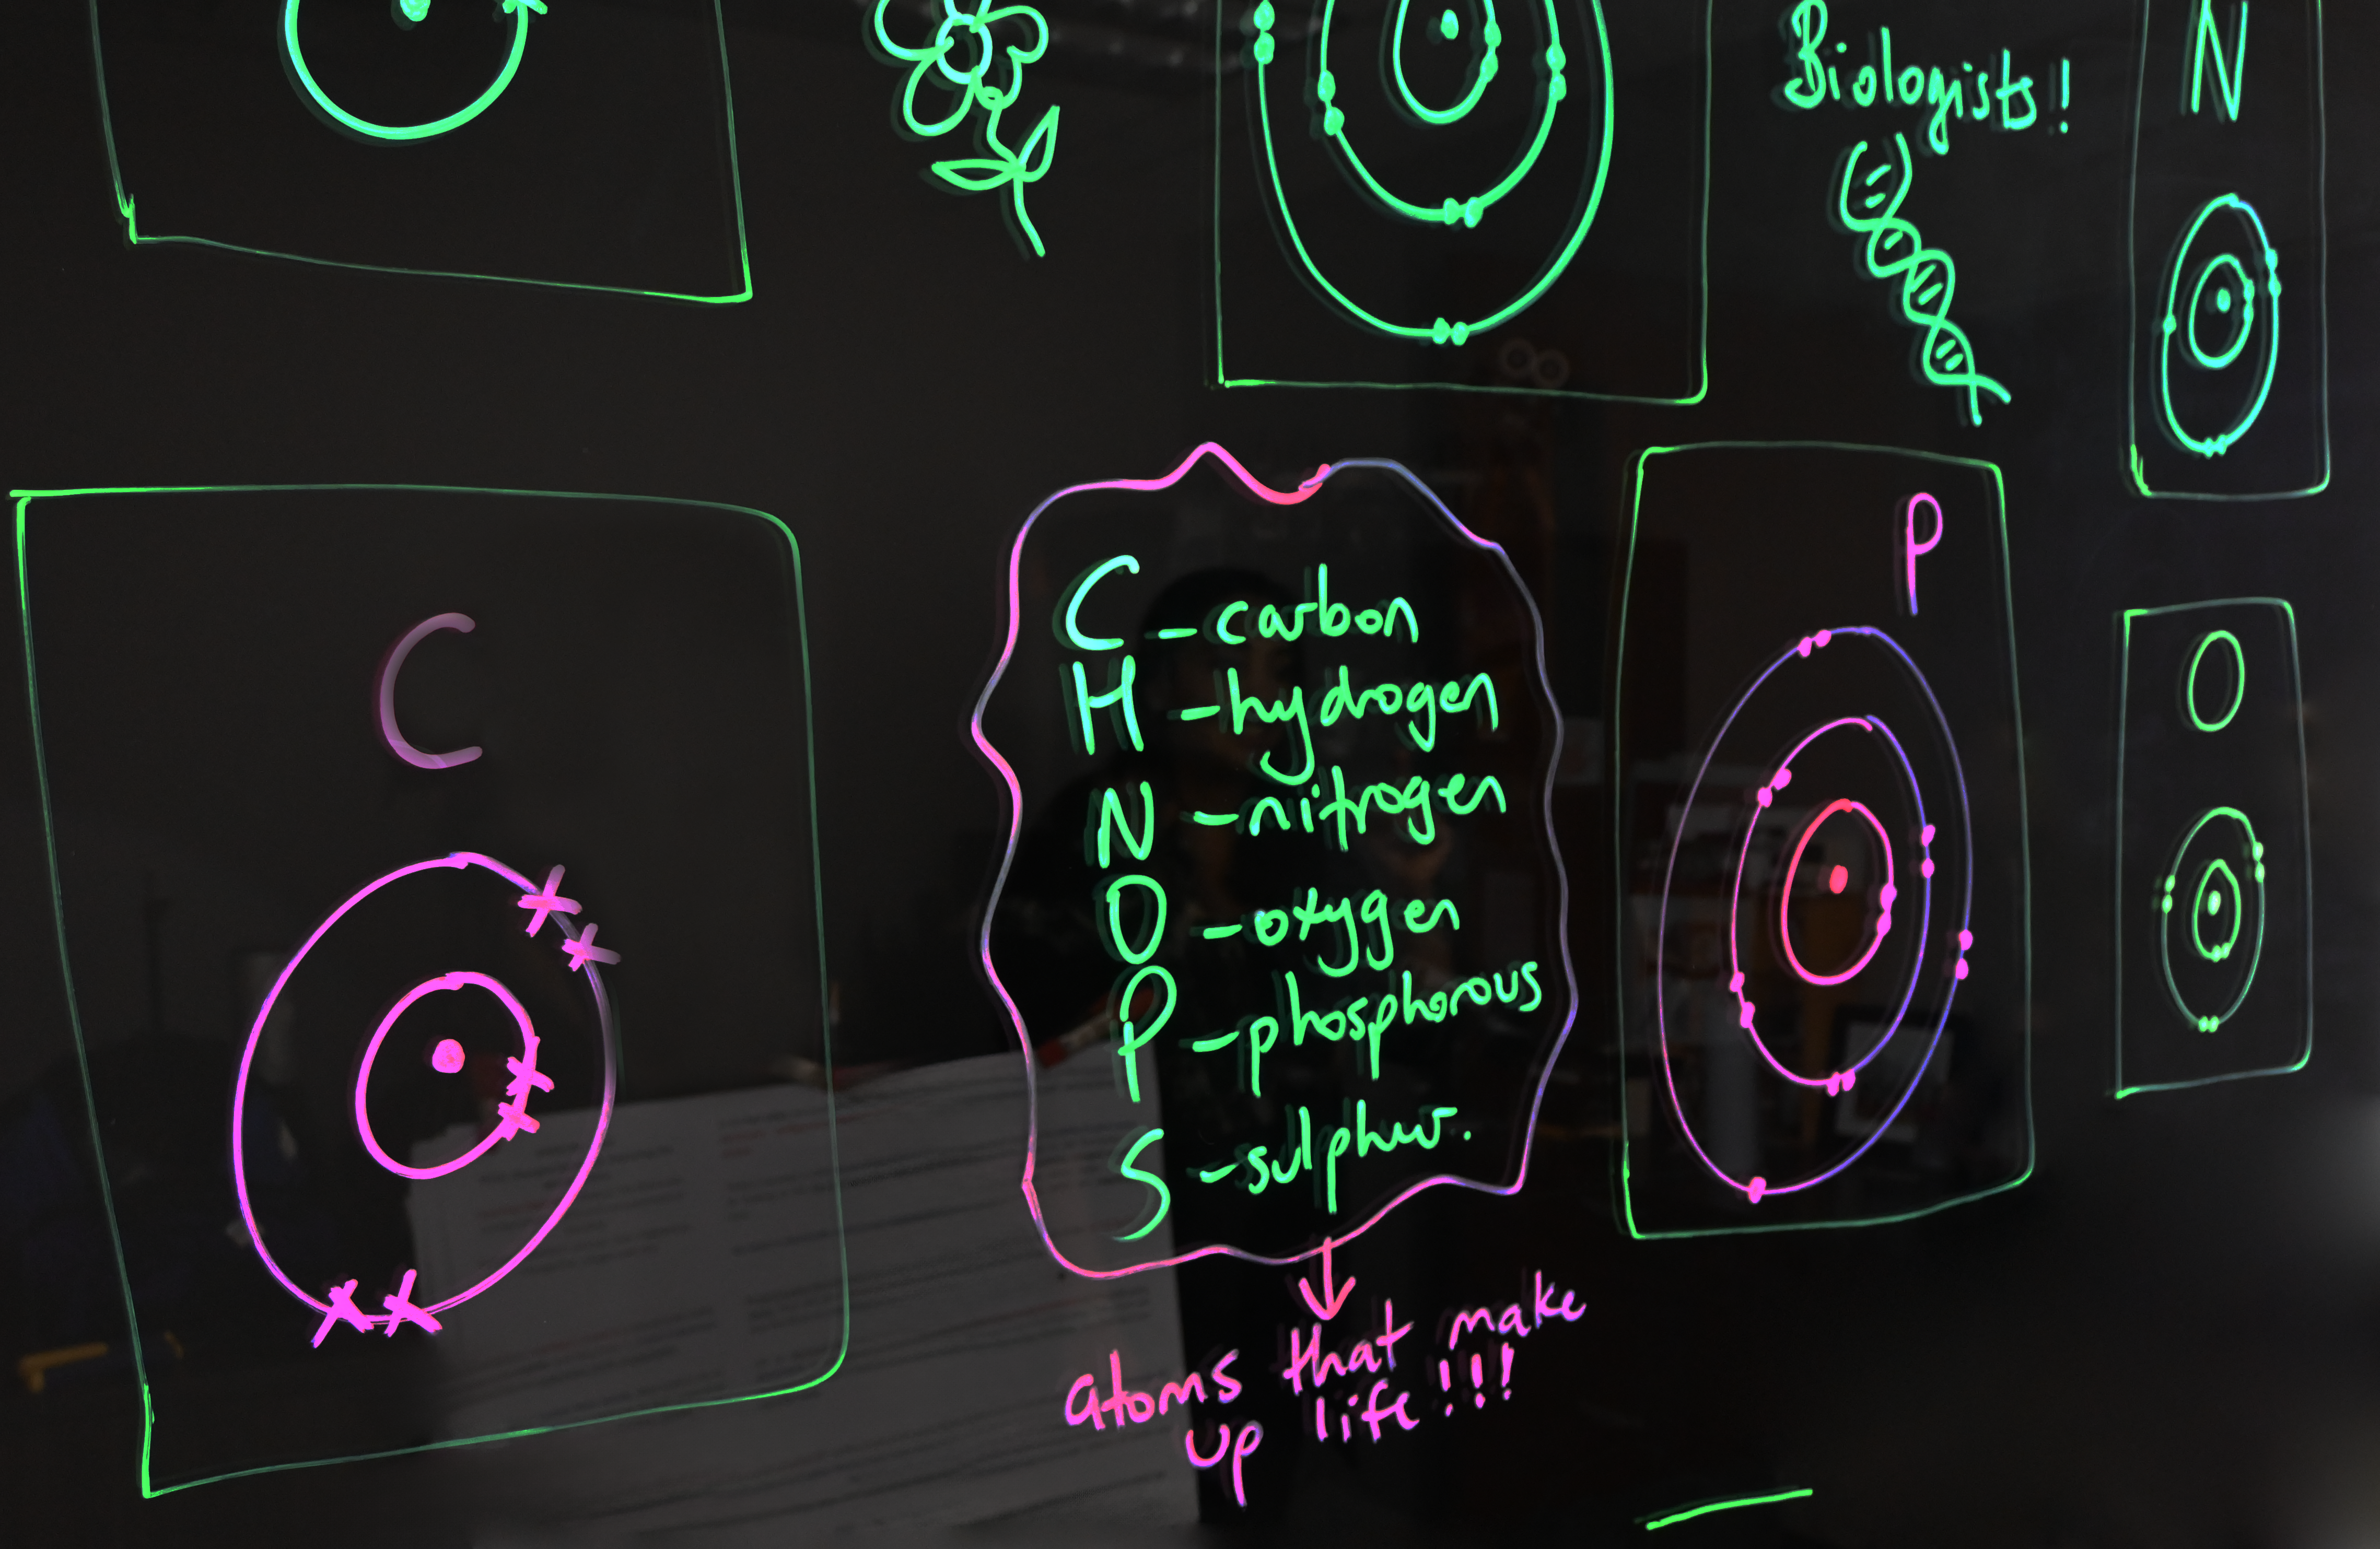 Biologists!
N
C
C - carbon
H - hydrogen
N - nitrogen
O - oxygen
P - phosphorous
S - sulphur.
atoms that make
up life!!!
P
O